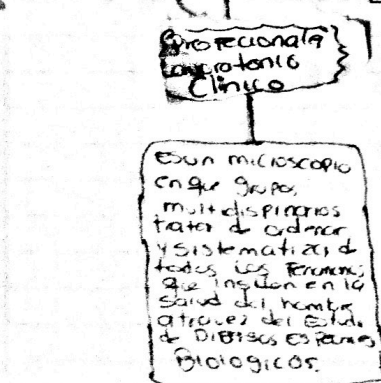 Profecionala
Lavoratorio
Clinico
Es un microscopio
en que grupos,
multidispinarios
trater de ordenar
y sistematizar de
todos los Fenomenos
que insiden en la
salud del hombre
atravez del Estudi
de Diversos Especimes
Biologicos.